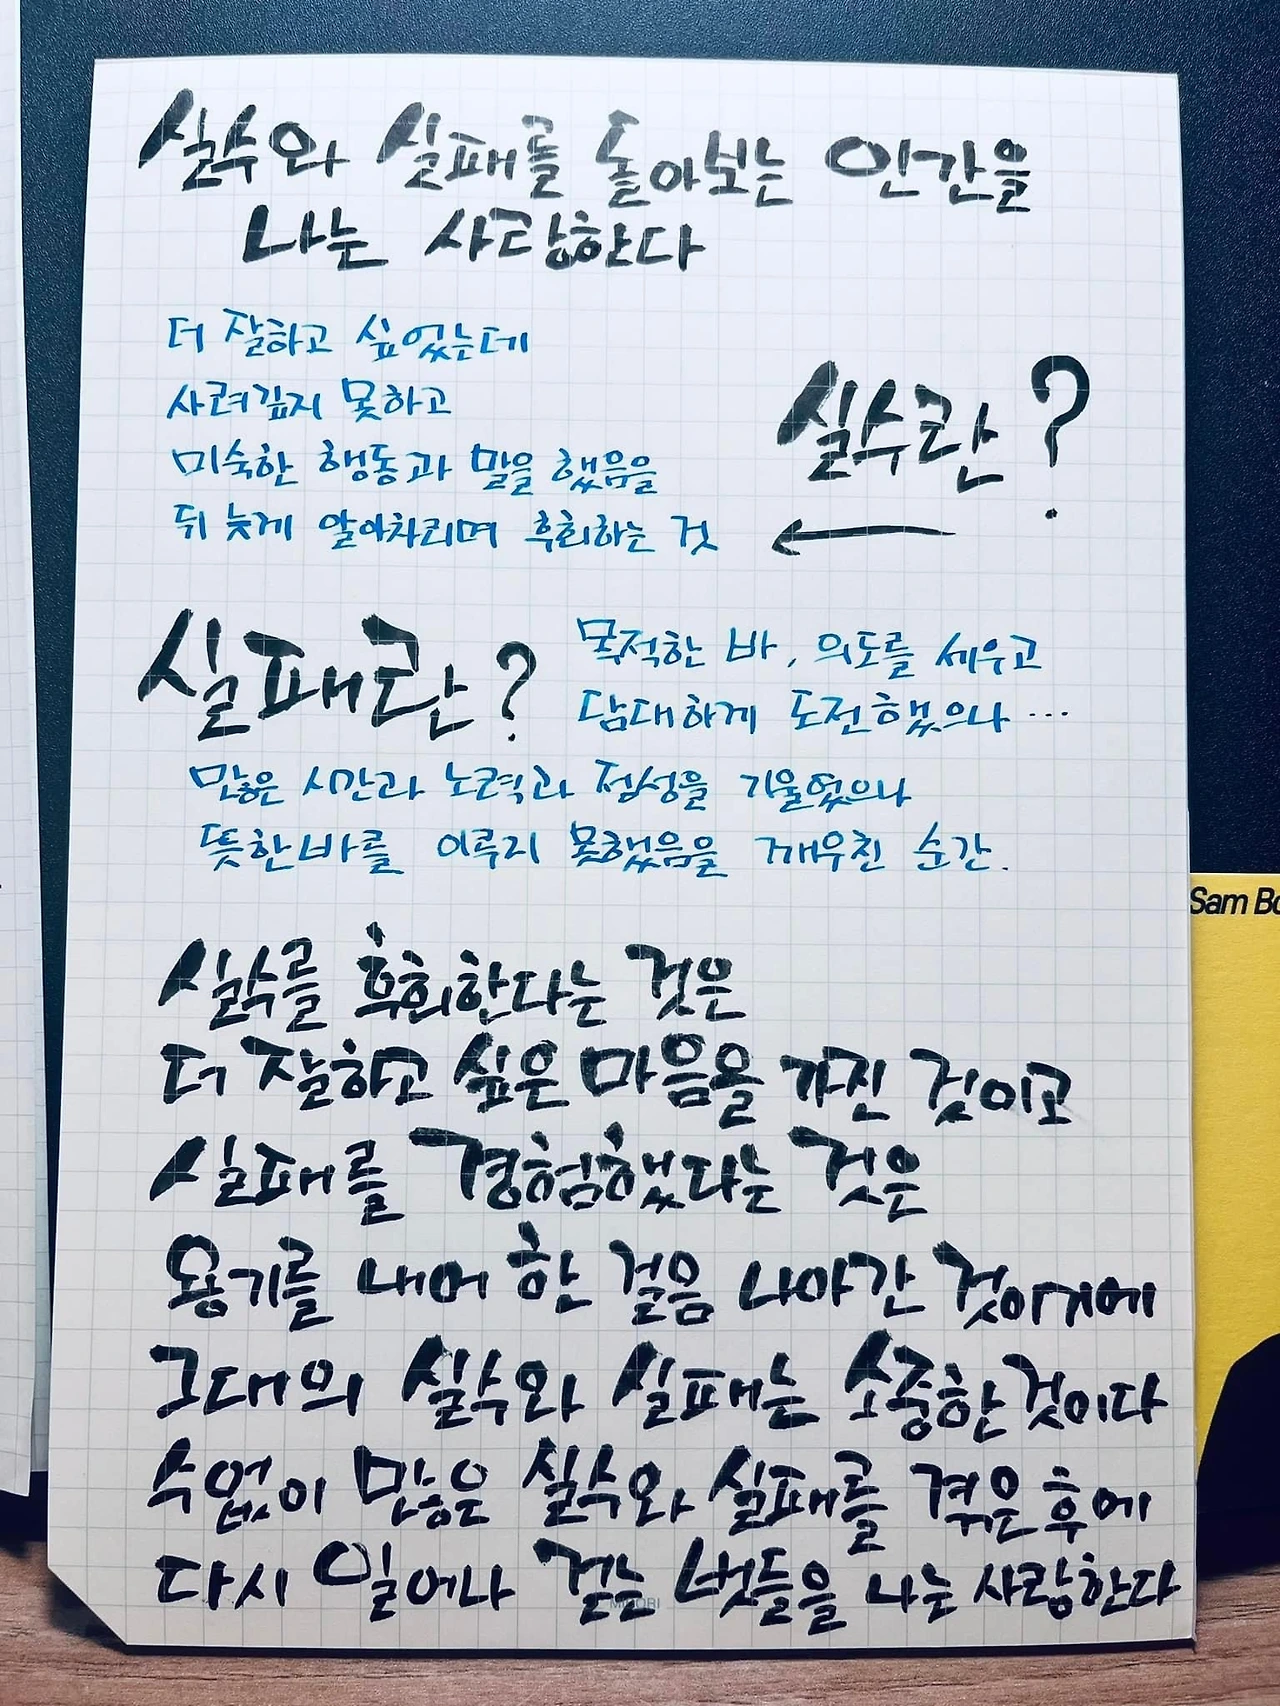 실수와 실패를 돌아보는 인간을
나는 사랑한다
더 잘하고 싶었는데
사려깊지 못하고
미숙한 행동과 말을 했음을
뒤 늦게 알아차리며 후회하는 것
실수란?
실패란?
목적한 바, 의도를 세우고
담대하게 도전했으나 …
많은 시간과 노력과 정성을 기울였으나
뜻한바를 이루지 못했음을 깨우친 순간.
실수를 후회한다는 것은
더 잘하고 싶은 마음을 가진 것이고
실패를 경험했다는 것은
용기를 내어 한 걸음 나아간 것이기에
그대의 실수와 실패는 소중한 것이다
수없이 많은 실수와 실패를 겪은 후에
다시 일어나 걷는 벗들을 나는 사랑한다
MIDORI
Sam